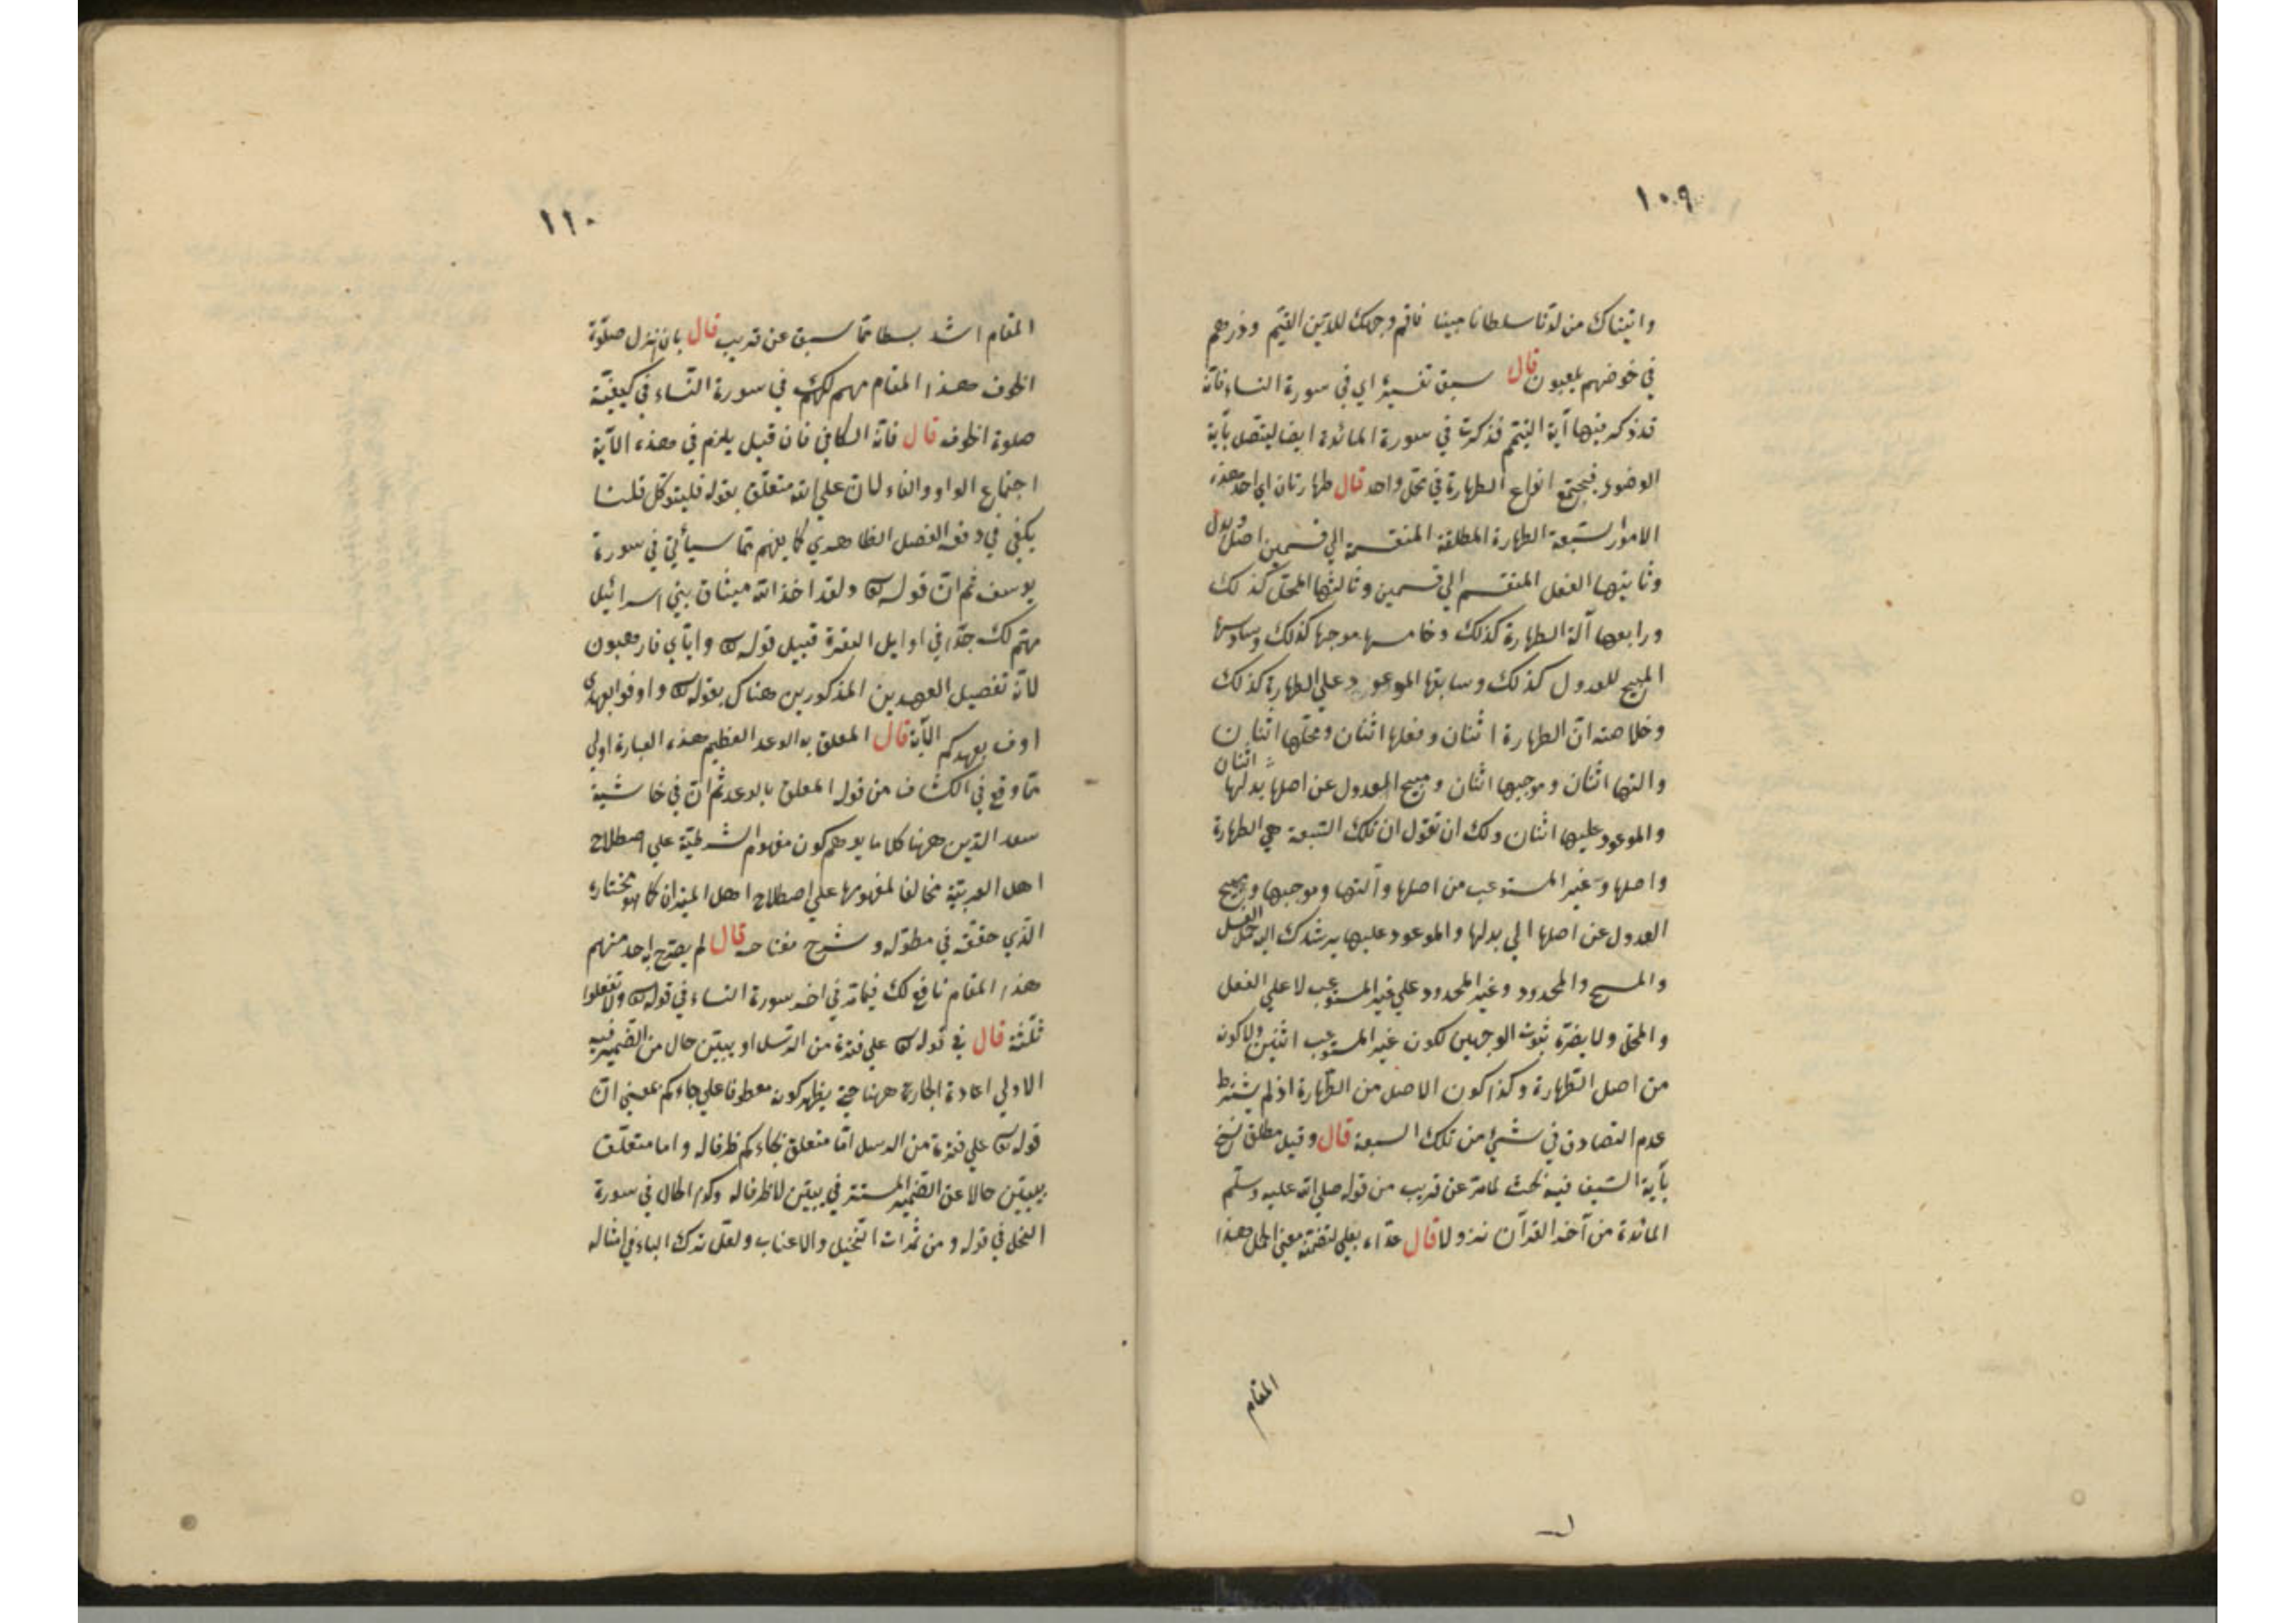 ١٠٩
واتيناك من لدنا سلطانا مبينا فاقم وجهك للدين القيم وذرهم
في خوضهم يلعبون قال سبق تفسيره اي في سورة النساء فانه
قد ذكر فيها آية التيمم فذكرت في سورة المائدة ايضا ليتصل بآية
الوضوء فيجتمع انواع الطهارة في محل واحد قال طهارتان اي احد هذه
الامور السبعة الطهارة المطلقة المنقسمة الي قسمين اصل وبدل
وثانيتها الفعل المنقسم الي قسمين وثالثها المحل كذلك
ورابعها آلة الطهارة كذلك وخامسها موجبها كذلك وسادسها
المبيح للعدول كذلك وسابعها الموعود علي الطهارة كذلك
وخلاصته ان الطهارة اثنتان وفعلها اثنان ومحلها اثنان
والتها اثنان وموجبها اثنان ومبيح العدول عن اصلها بدلها اثنان
والموعود عليها اثنان ولك ان تقول ان تلك السبعة هي الطهارة
واصلها وغير المستوعب من اصلها وآلتها وموجبها ومبيح
العدول عن اصلها الي بدلها والموعود عليها يرشدك اليه حمل الغسل
والمسح والمحدود وغير المحدود علي غير المستوعب لا علي الفعل
والمحل ولا يضره ثبوت الوجهين لكون غير المستوعب اثنين ولا كونه
من اصل الطهارة وكذا كون الاصل من الطهارة اذ لم يشترط
عدم التصادق في شيء من تلك السبعة قال وقيل مطلق نسخ
بآية السيف فيه بحث لما مر عن قريب من قوله صلي الله عليه وسلم
المائدة من آخر القرآن نزولا قال عداه بعلي لتضمنه معني الحمل هذا
المقام
١١٠
المقام اشد بسطا مما سبق عن قريب قال بان نزل صلوة
الخوف هذا المقام مهم لك في سورة النساء في كيفية
صلوة الخوف قال فانه الكافي فان قيل يلزم في هذه الآية
اجتماع الواو والفاء لان علي الله متعلق بقوله فليتوكل قلنا
يكفي في دفعه الفصل الظاهري كما يفهم مما سيأتي في سورة
يوسف ثم ان قوله ولقد اخذ الله ميثاق بني اسرائيل
مهم لك جدا في اوايل البقرة قبيل قوله واياي فارهبون
لانه تفصيل العهدين المذكورين هناك بقوله واوفوا بعهدي
اوف بعهدكم الآية قال المعلق به الوعد العظيم هذه العبارة اولي
مما وقع في الكشاف من قوله المعلق بالوعد ثم ان في حاشية
سعد الدين ههنا كلاما يوهم كون مفهوم الشرطية علي اصطلاح
اهل العربية مخالفا لمفهومها علي اصطلاح اهل الميزان كما هو مختاره
الذي حققه في مطوله وشرح مفتاحه قال لم يصرح به احد منهم
هذا المقام نافع لك فيما مر في اخر سورة النساء في قوله ولا تقولوا
ثلثة قال في قوله علي فترة من الرسل او يبين حال من الضمير فيه
الاولي اعادة الجارة ههنا حتي يظهر كونه معطوفا علي جاءكم بمعني ان
قوله علي فترة من الرسل اما متعلق بجاءكم ظرفا له واما متعلق
بيبين حالا عن الضمير المستتر في يبين لا ظرفا له وكذا الحال في سورة
النحل في قوله ومن ثمرات النخيل والاعناب ولعل ترك الباء في امثاله